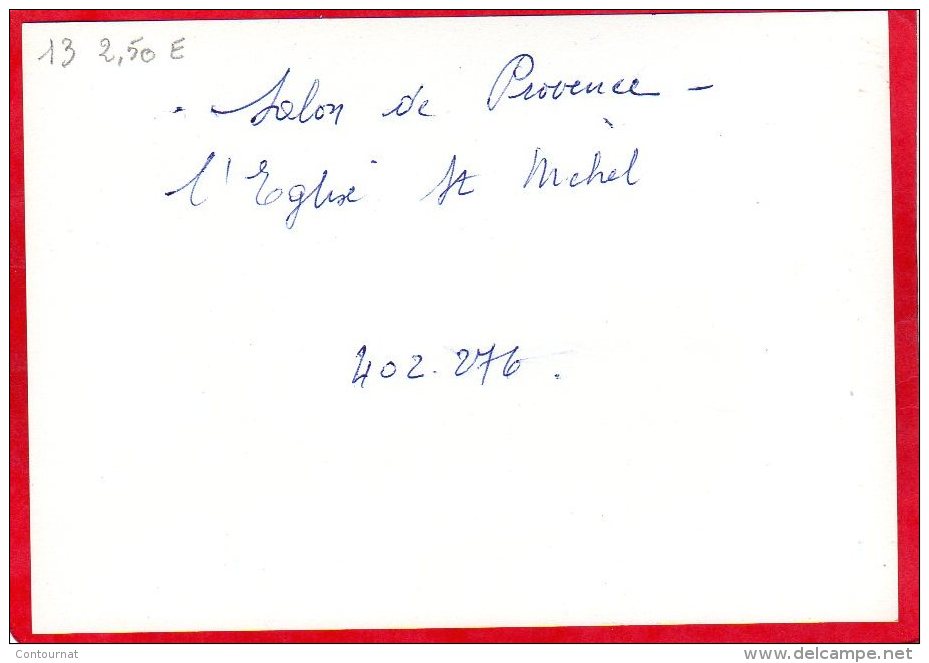 13 2,50 E
- Salon de Provence -
l'Eglise St Michel
402.276.
Contournat
www.delcampe.net